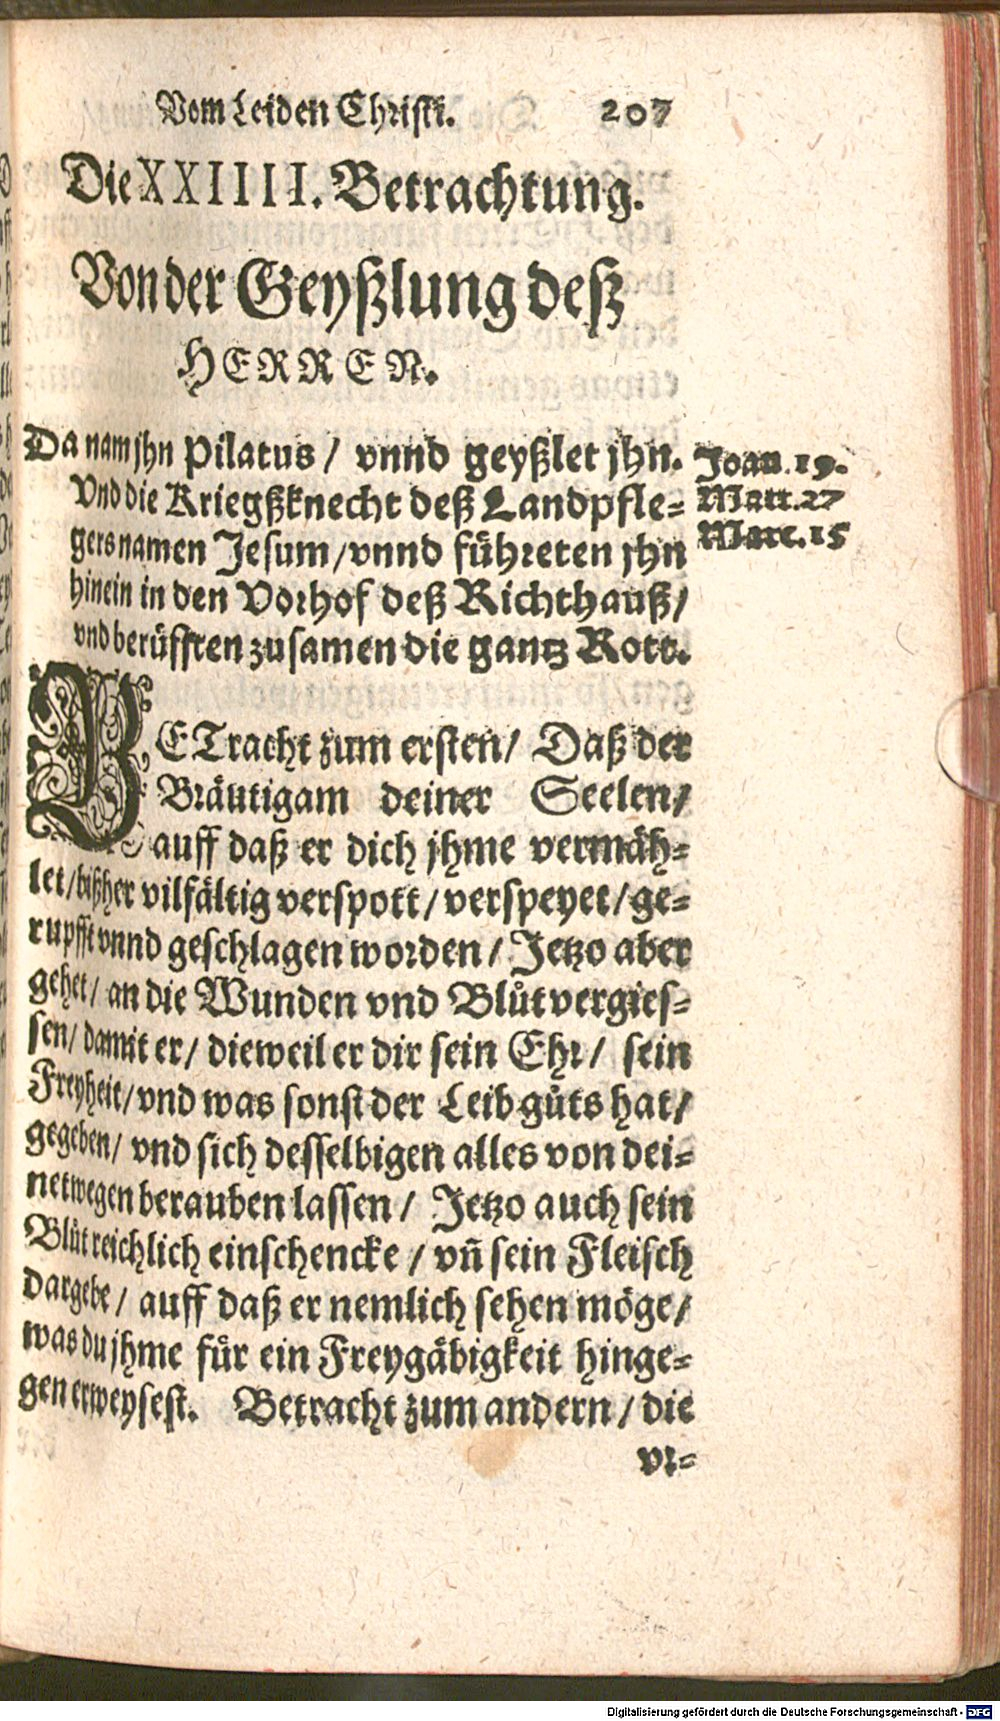 Vom Leiden Christi. 207
Die XXIIIII. Betrachtung.
Von der Geyßlung deß
HERREN.
Da nam jhn Pilatus / vnnd geyßlet jhn.
Vnd die Kriegßknecht deß Landpfle=
gers namen Jesum / vnnd fuͤhreten jhn
hinein in den Vorhof deß Richthauß /
vnd beruͤfften zusamen die gantz Rott.
Joan. 19.
Matt. 27
Marc. 15
BETracht zum ersten / Daß der
Braͤutigam deiner Seelen /
auff daß er dich jhme vermaͤh=
let / bißher vilfaͤltig verspott / verspeyet / ge=
rupfft vnnd geschlagen worden / Jetzo aber
gehet / an die Wunden vnd Bluͦtvergies=
sen / damit er / dieweil er dir sein Ehr / sein
Freyheit / vnd was sonst der Leib guͦts hat /
gegeben / vnd sich desselbigen alles von dei=
netwegen berauben lassen / Jetzo auch sein
Bluͦt reichlich einschencke / vñ sein Fleisch
dargebe / auff daß er nemlich sehen moͤge /
was du jhme fuͤr ein Freygaͤbigkeit hinge=
gen erweysest. Betracht zum andern / die
vr=
Digitalisierung gefördert durch die Deutsche Forschungsgemeinschaft - DFG